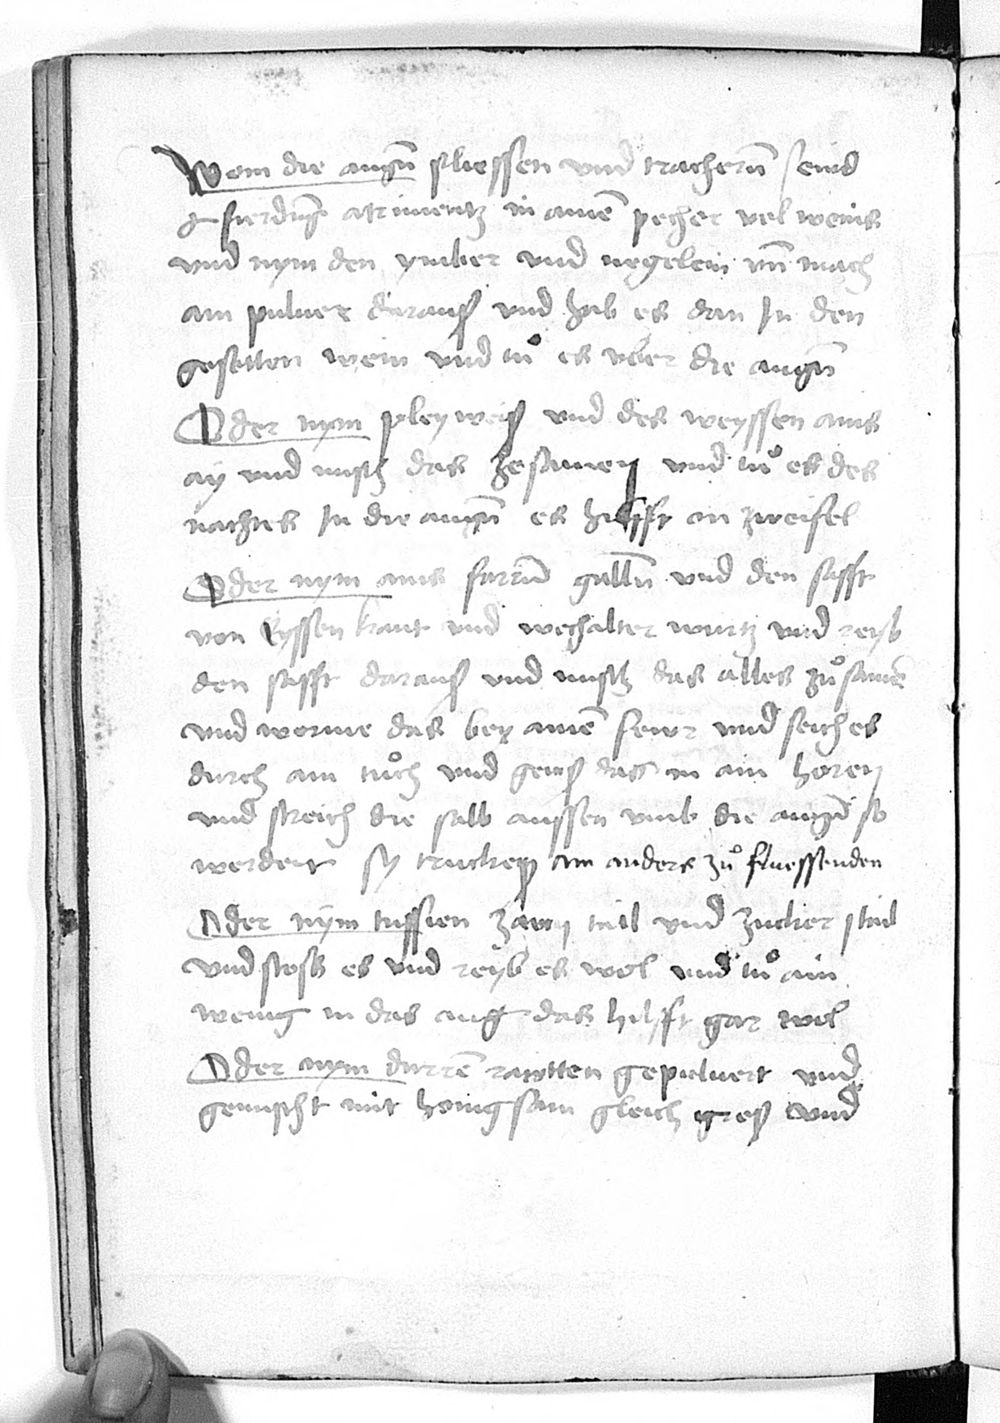 Wem die augn̄ fliessen vnd trachern̄ seud
j fierdūg atrimentz in ainē pecher vol weins
vnd nym den ymber vnd negelein vn̄ mach
ain puluer daraus vnd hab es dan In den
gesotten wein vnd tuͦ es vber die augn̄
Oder nym pleyweiß vnd des weyssen ains
ay vnd misch das zesamen vnd tuͦ es des
nachtes In die augn̄ es hilfft on zweifel
Oder nym ains farrn̄ galln̄ vnd den safft
von kraut vnd wechalter wurtz vnd reyb
den safft darauß vnd misch das alles zuͦ samē
vnd werme das bey ainē fewr vnd seich es
durch ain tuͦch vnd geuß das in ain horen
vnd streich die salb aussen vmb die augn̄ so
werdent sy trucken ain anders zuͦ fluessenden
Oder nym tussien zway tail vnd zucker j tail
vnd stoss es vnd reyb es wol vnd tuͦ ain
wenig in das aug das hilfft gar wol
Oder nym durrē rawtten gepuluert vnd
gemischt mit honigsam gleich gros vnd